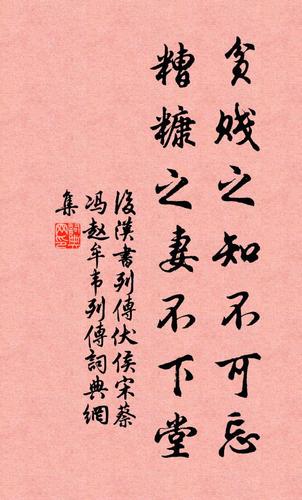 貧賤之知不可忘
糟糠之妻不下堂
後漢書列傳伏侯宋蔡
冯赵牟韦列傳詞典網
集